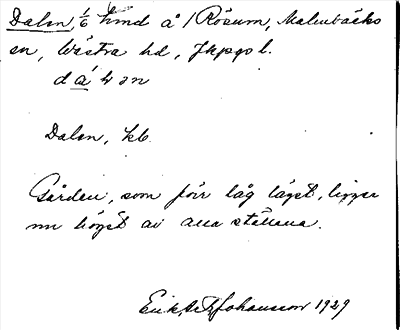 Dalen, 1/6 hmd å / Rösum, Malmbäcks
en, Västra hd, Jkpgs l.
Dalen, kb.
Gården, som förr låg lägst, ligger
nu högst av alla ställena.
Erik Johansson 1929